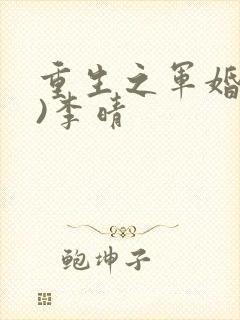 重生之军婚
)李晴
鲍坤子